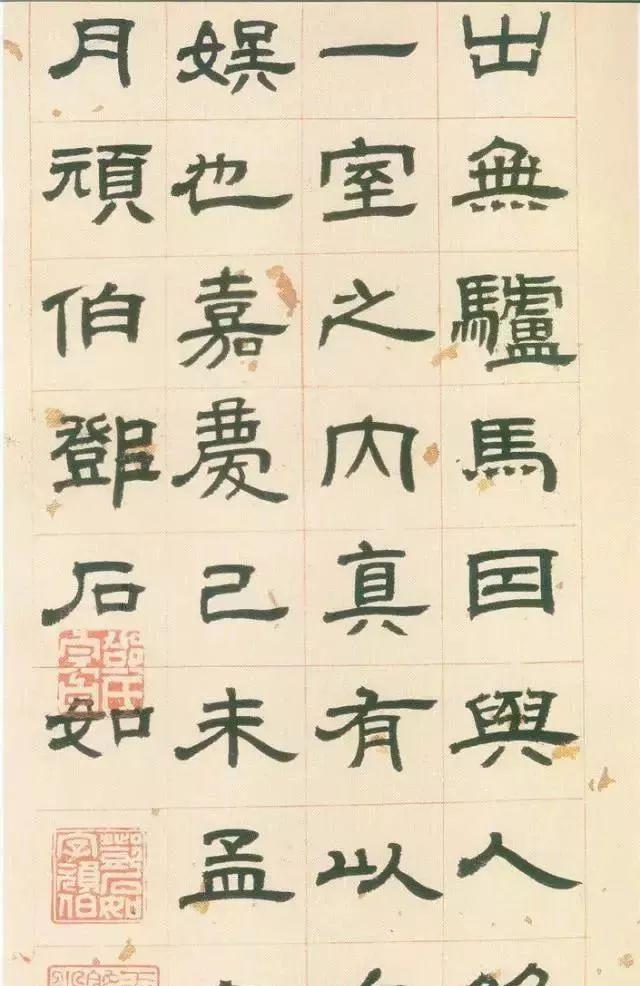 出無驢馬囙與人
一室之內真有以
娛也嘉慶己未孟
月頑伯鄧石如
鄧石如字頑伯